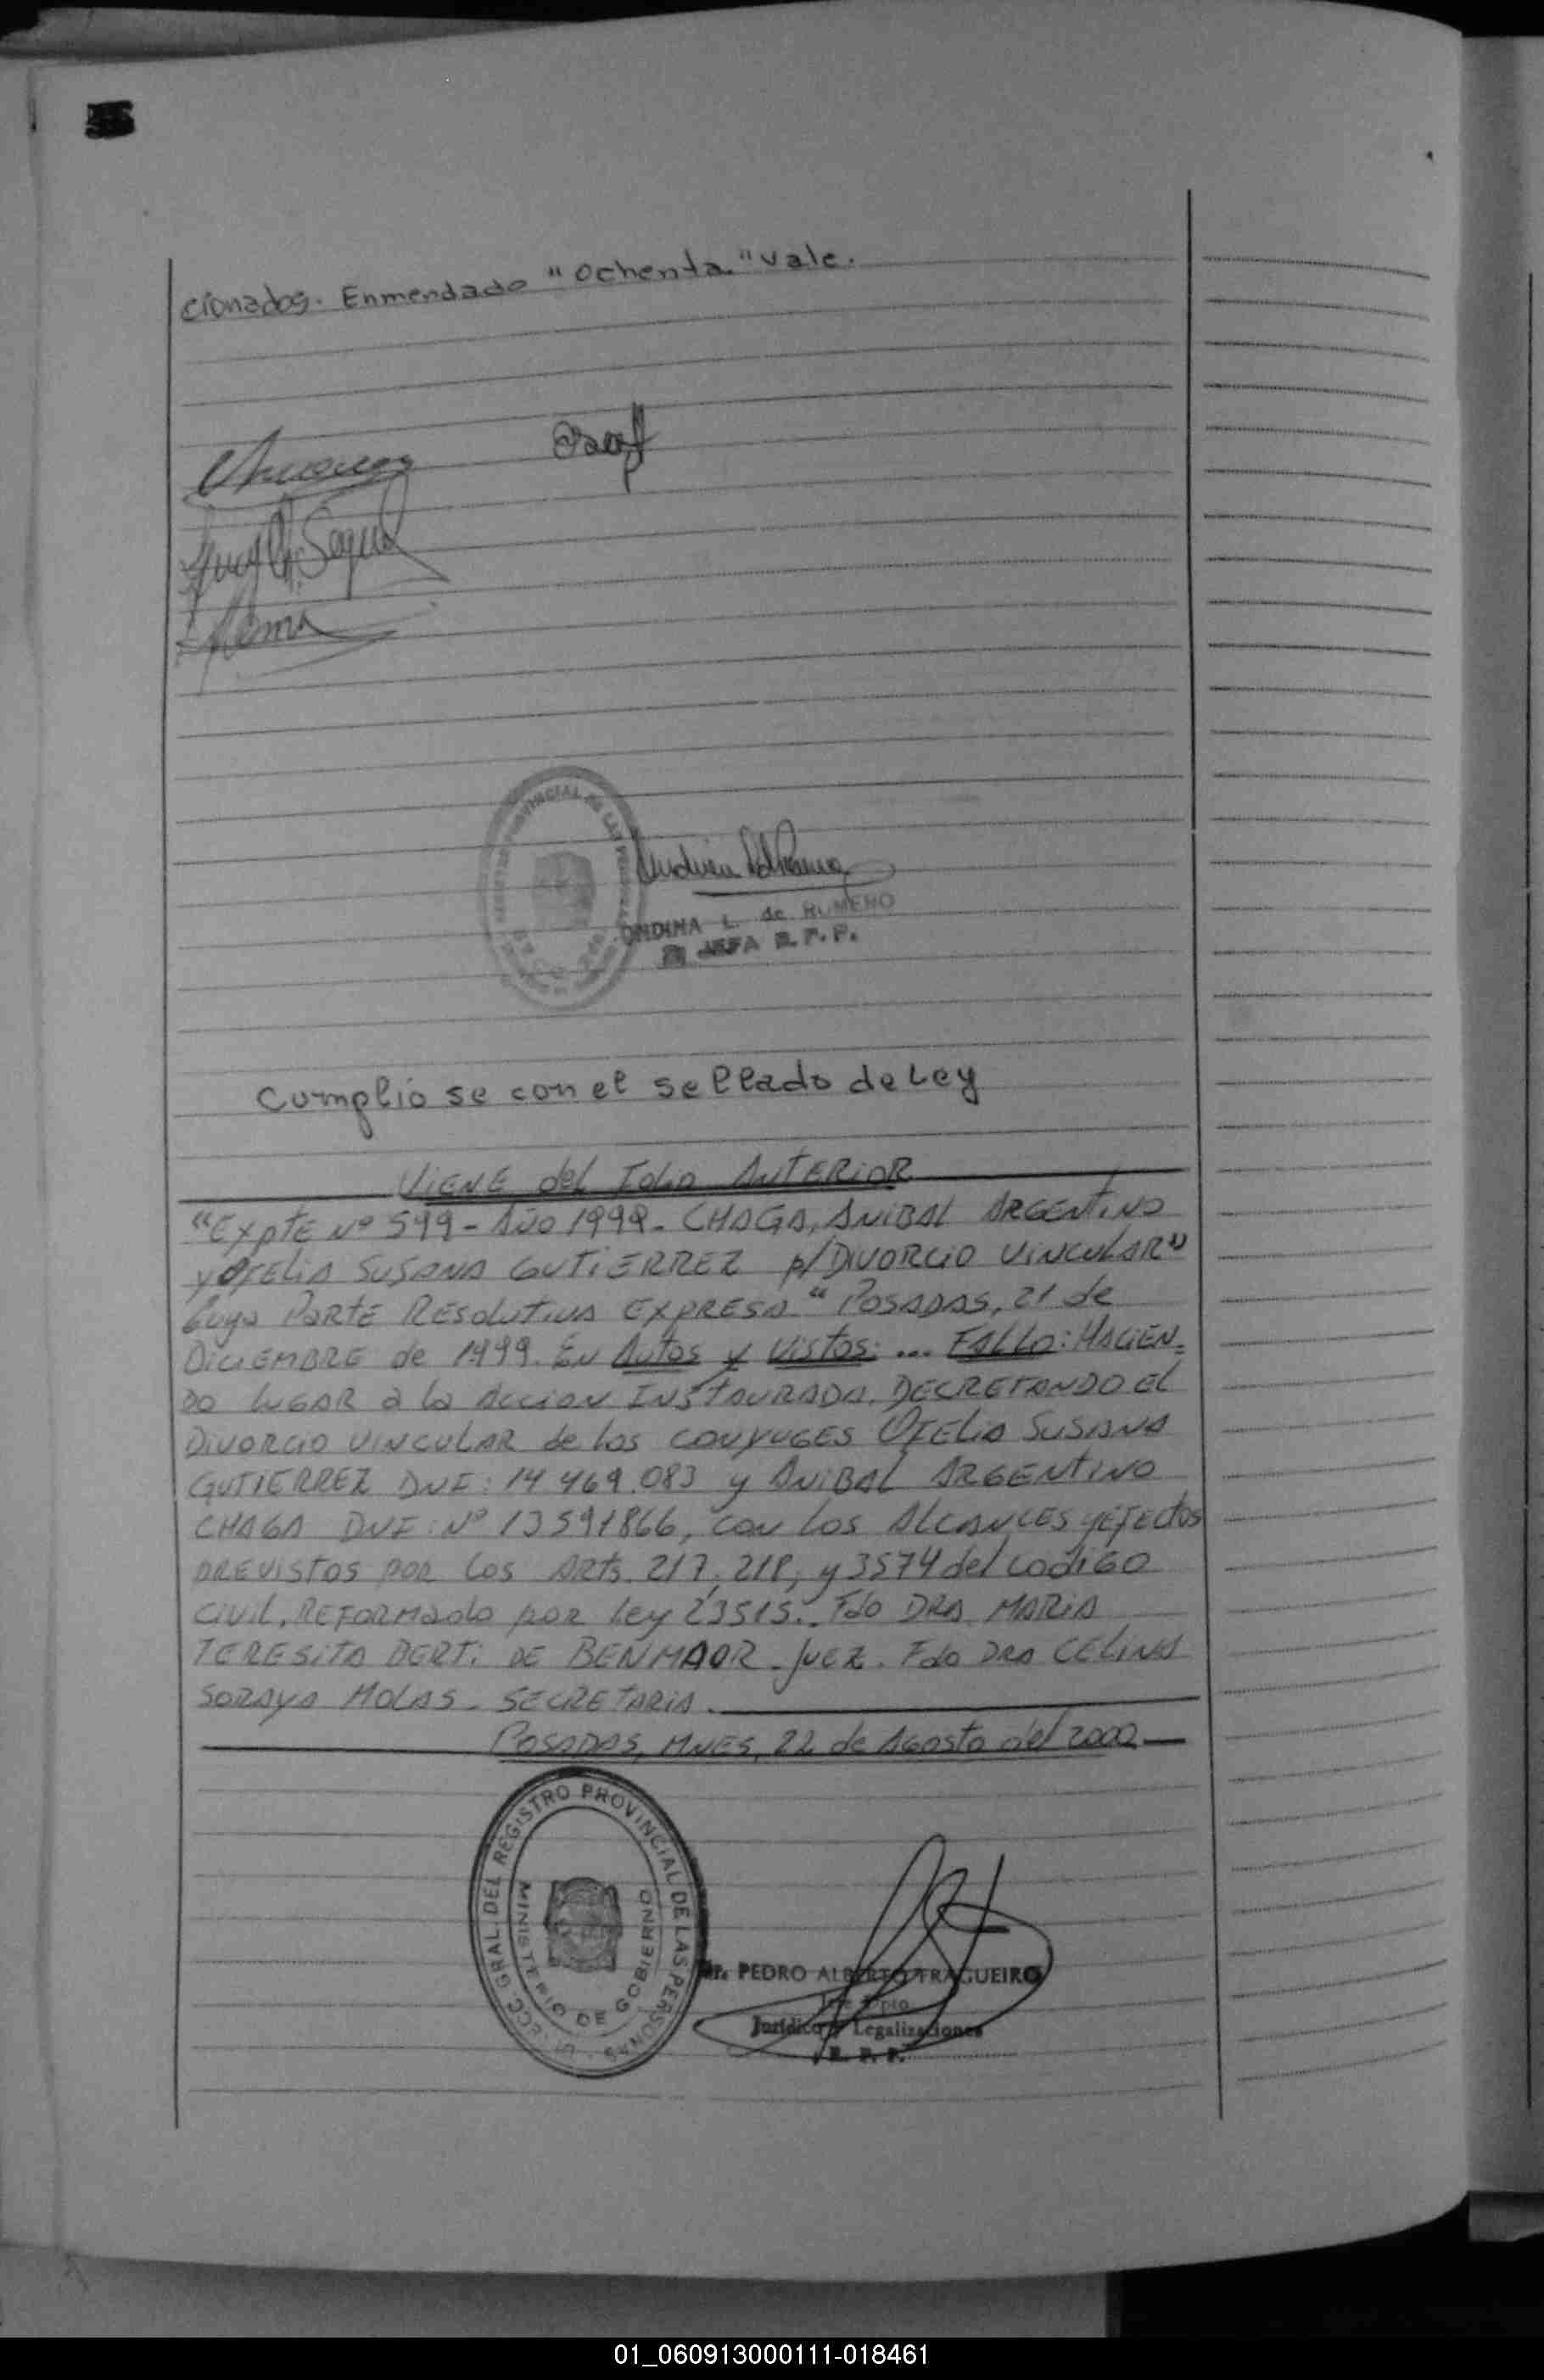 cionados. Enmendado "Ochenta" vale.
ONDINA L. de ROMERO
JEFA R.P.P.
Cumplió se con el sellado de Ley
VIENE del Folio ANTERIOR
"EXPTE Nº 599 - AÑO 1999 - CHAGA, ANIBAL ARGENTINO
y OFELIA SUSANA GUTIERREZ p/DIVORCIO VINCULAR"
Cuya PARTE RESOLUTIVA EXPRESA "POSADAS, 21 de
DICIEMBRE de 1999. EN AUTOS y VISTOS: ... FALLO: HACIEN=
DO LUGAR a la ACCION INSTAURADA, DECRETANDO El
DIVORCIO VINCULAR de los CONYUGES OFELIA SUSANA
GUTIERREZ DNI: 14 469.083 y ANIBAL ARGENTINO
CHAGA DNI: Nº 13591866, con los ALCANCES y EFECTOS
PREVISTOS POR los ARTS. 217, 218, y 3574 del CODIGO
CIVIL, REFORMADO por Ley 23515. Fdo DRA MARIA
TERESITA BERTI DE BENMAOR - JUEZ. Fdo DRA CELINA
SORAYA MOLAS - SECRETARIA.
POSADAS, MNES, 22 de AGOSTO del 2000
DIRECC. GRAL. DEL REGISTRO PROVINCIAL DE LAS PERSONAS
MINISTERIO DE GOBIERNO
PEDRO ALBERTO TRAGUEIRO
Jurídico y Legalizaciones
R. P. P.
01_060913000111-018461